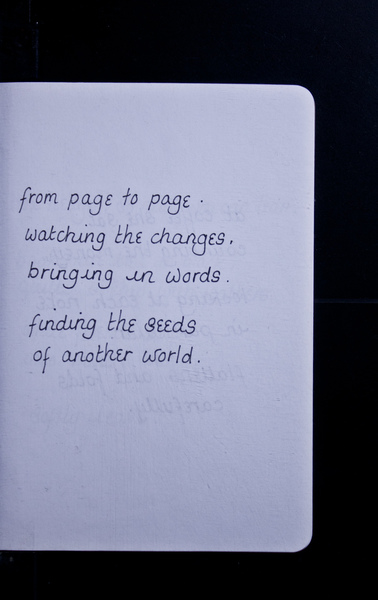 from page to page.
watching the changes,
bringing in words.
finding the seeds
of another world.